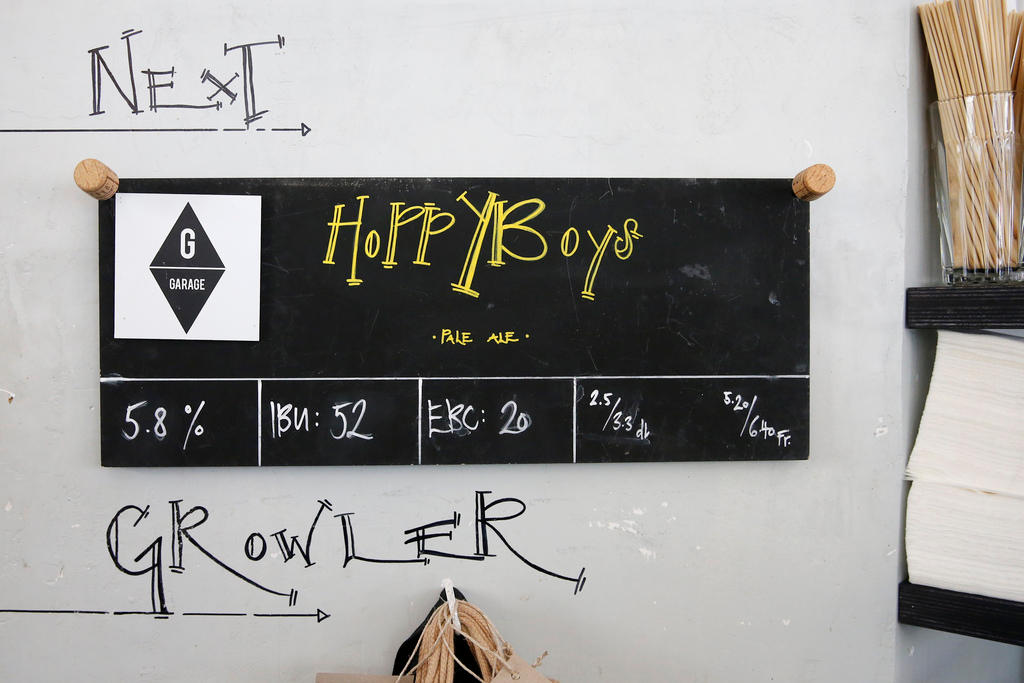 NEXT
G
GARAGE
HOPPYBOYS
· PALE ALE ·
5.8 %
IBU: 52
EBC: 20
2.5/3.3 dl
5.20/6.40 Fr.
GROWLER